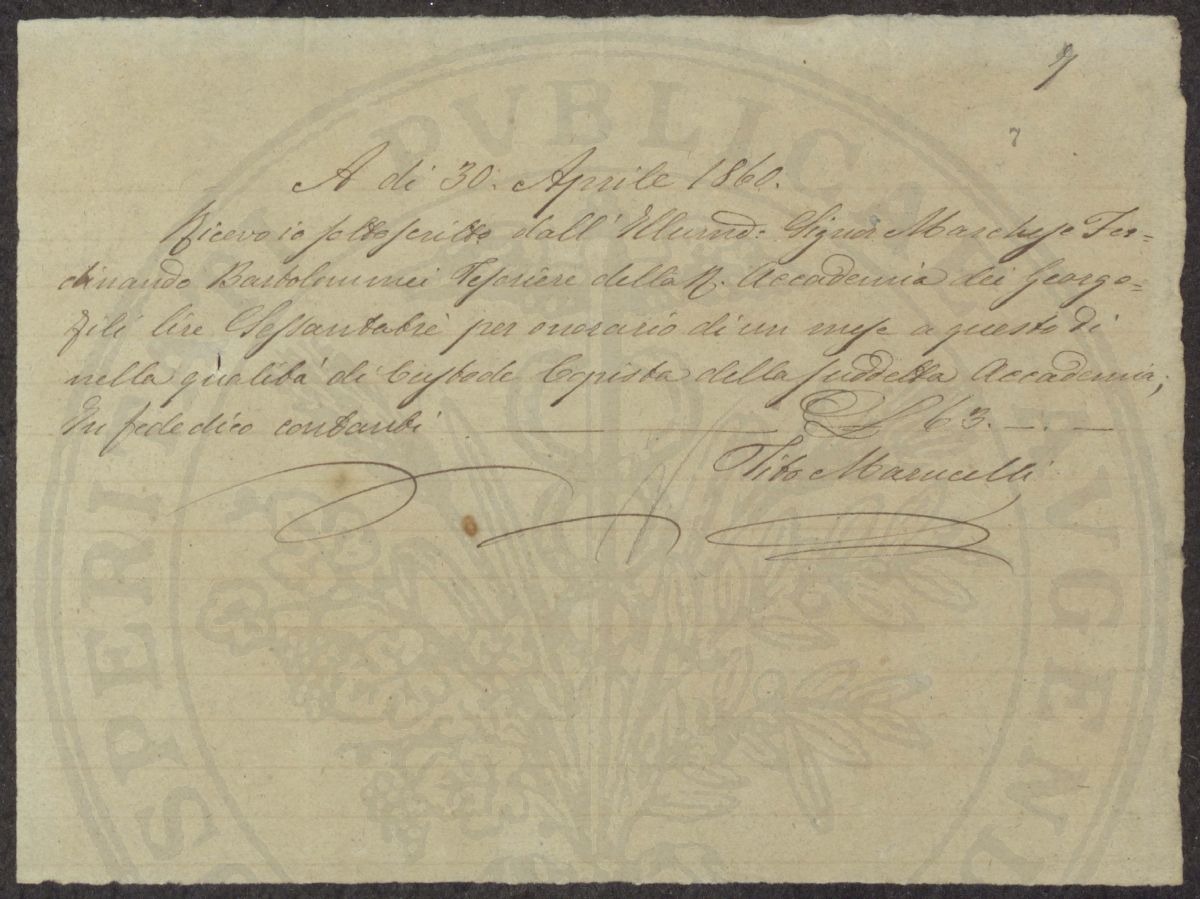 7
7
A di 30. Aprile 1860.
Ricevo io sottoscritto dall' Illumo: Signor Marchese Fer=
dinando Bartolommei Tesoriere della R. Accademia dei Georgo=
fili lire Sessantatrè per onorario di un mese a questo dì
nella qualità di Custode Copista della suddetta Accademia;
In fede dico contanti £ 63. —.—
Tito Marucelli
PROSPERITATI PVBLICAE AVGENDAE